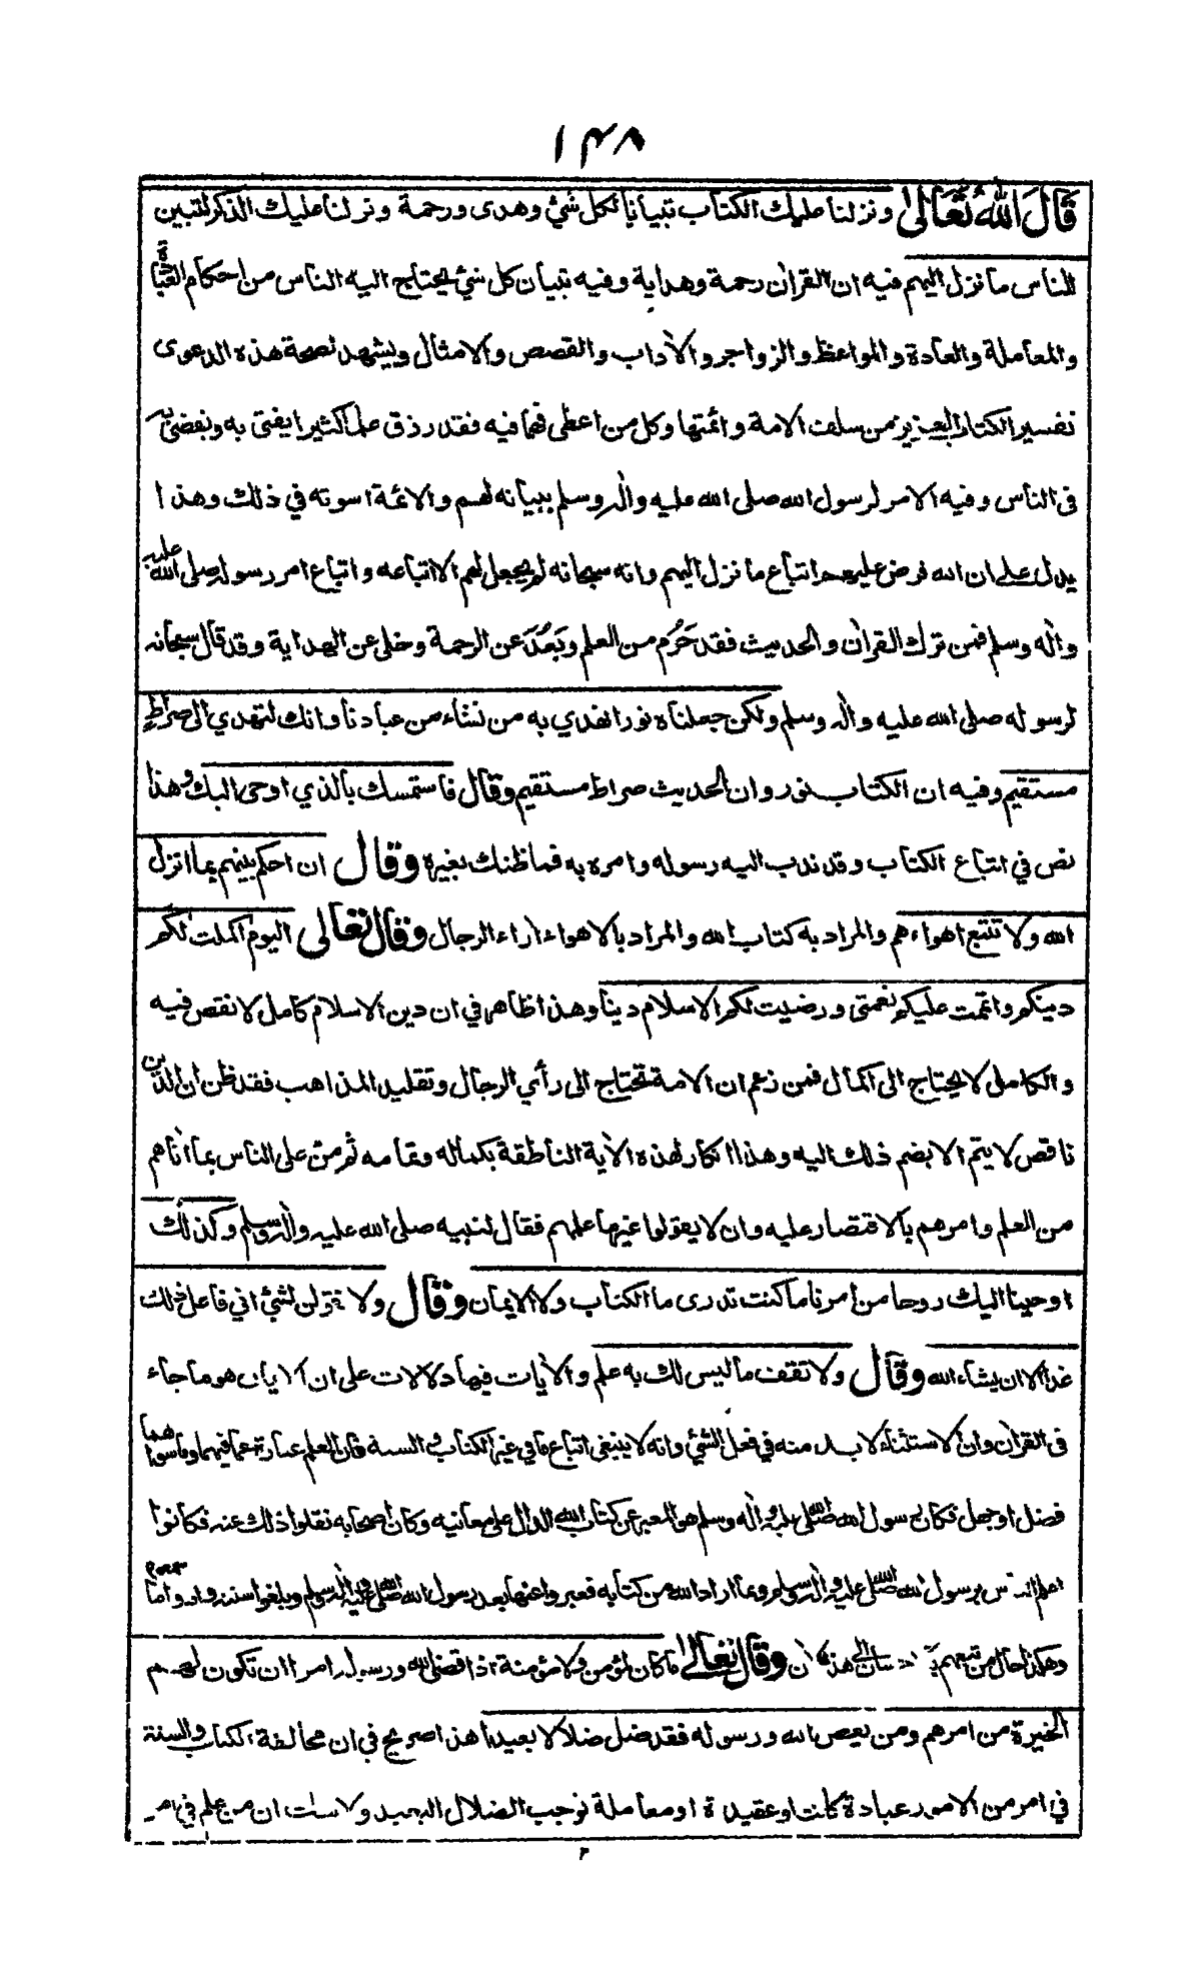 ۱۴۸
قَالَ اللهُ تَعَالٰى ونزلنا عليك الكتاب تبيانا لكل شئ وهدى ورحمة ونزلنا عليك الذكر لتبين
للناس ما نزل اليهم فيه ان القران رحمة وهداية وفيه تبيان كل شئ يحتاج اليه الناس من احكام
والمعاملة والعادة والمواعظ والزواجر والاداب والقصص والامثال ويشهد لصحة هذه الدعوى
تفسير الكتاب العزيز ممن سلف الامة وائمتها وكل من اعطى فهما فيه فقد رزق علما كثيرا يفتى به ويقضى به
فى الناس وفيه الامر لرسول الله صلى الله عليه واله وسلم ببيانه لهم والائمة اسوته في ذلك وهذا
يدل على ان الله فرض عليهم اتباع ما نزل اليهم وانه سبحانه لم يجعل لهم الا اتباعه واتباع امر رسوله صلى الله عليه
واله وسلم فمن ترك القران والحديث فقد حَرُم من العلم وبَعُدَ عن الرحمة وخلى عن الهداية وقد قال سبحانه
لرسوله صلى الله عليه واله وسلم ولكن جعلناه نورا نهدي به من نشاء من عبادنا وانك لتهدي الى صراط
مستقيم وفيه ان الكتاب نور وان الحديث صراط مستقيم وقال فاستمسك بالذي اوحى اليك وهذا
نص في اتباع الكتاب وقد ندب اليه رسوله وامره به فما ظنك بغيره وقال ان احكم بينهم بما انزل
الله ولا تتبع اهواءهم والمراد به كتاب الله والمراد بالاهواء اراء الرجال وقال تعالى اليوم اكملت لكم
دينكم واتممت عليكم نعمتى ورضيت لكم الاسلام دينا وهذا ظاهر في ان دين الاسلام كامل لا نقص فيه
والكامل لا يحتاج الى اكمال فمن زعم ان الامة تحتاج الى رأي الرجال وتقليد المذاهب فقد ظن ان الدين
ناقص لا يتم الا بضم ذلك اليه وهذا انكار لهذه الاية الناطقة بكماله وتمامه ثم من على الناس بما اتاهم
من العلم وامرهم بالاقتصار عليه وان لا يقولوا غيرها علمهم فقال لنبيه صلى الله عليه واله وسلم وكذلك
اوحينا اليك روحا من امرنا ما كنت تدرى ما الكتاب ولا الايمان وقال ولا تقولن لشئ اني فاعل ذلك
غدا الا ان يشاء الله وقال ولا تقف ما ليس لك به علم والايات فيها دلالات على ان الايمان هو ما جاء
فى القران وان الاستثناء لا بد منه في فعل الشئ وانه لا ينبغى اتباع ما في غير الكتاب والسنة فان العلم عبارة عما فيهما وما سواهما
فضل او جهل فكان رسول الله صلى الله عليه واله وسلم هو المعبر عن كتاب الله الدال على معانيه وكان اصحابه نقلوا ذلك عنه فكانوا
اعلم الناس برسول الله صلى الله عليه واله وسلم وبما اراد الله من كتابه فعبروا عنها بعد رسول الله صلى الله عليه واله وسلم وبلغوا سننه
وهكذا حال من تبعهم الى هذا وقال تعالى ما كان لمؤمن ولا مؤمنة اذا قضى الله ورسوله امرا ان تكون لهم
الخيرة من امرهم ومن يعص الله ورسوله فقد ضل ضلالا بعيدا هذا صريح في ان مخالفة الكتاب والسنة
في امر من الامور عبادة كانت او عقيدة او معاملة توجب الضلال البعيد ان من علم في امر
۲